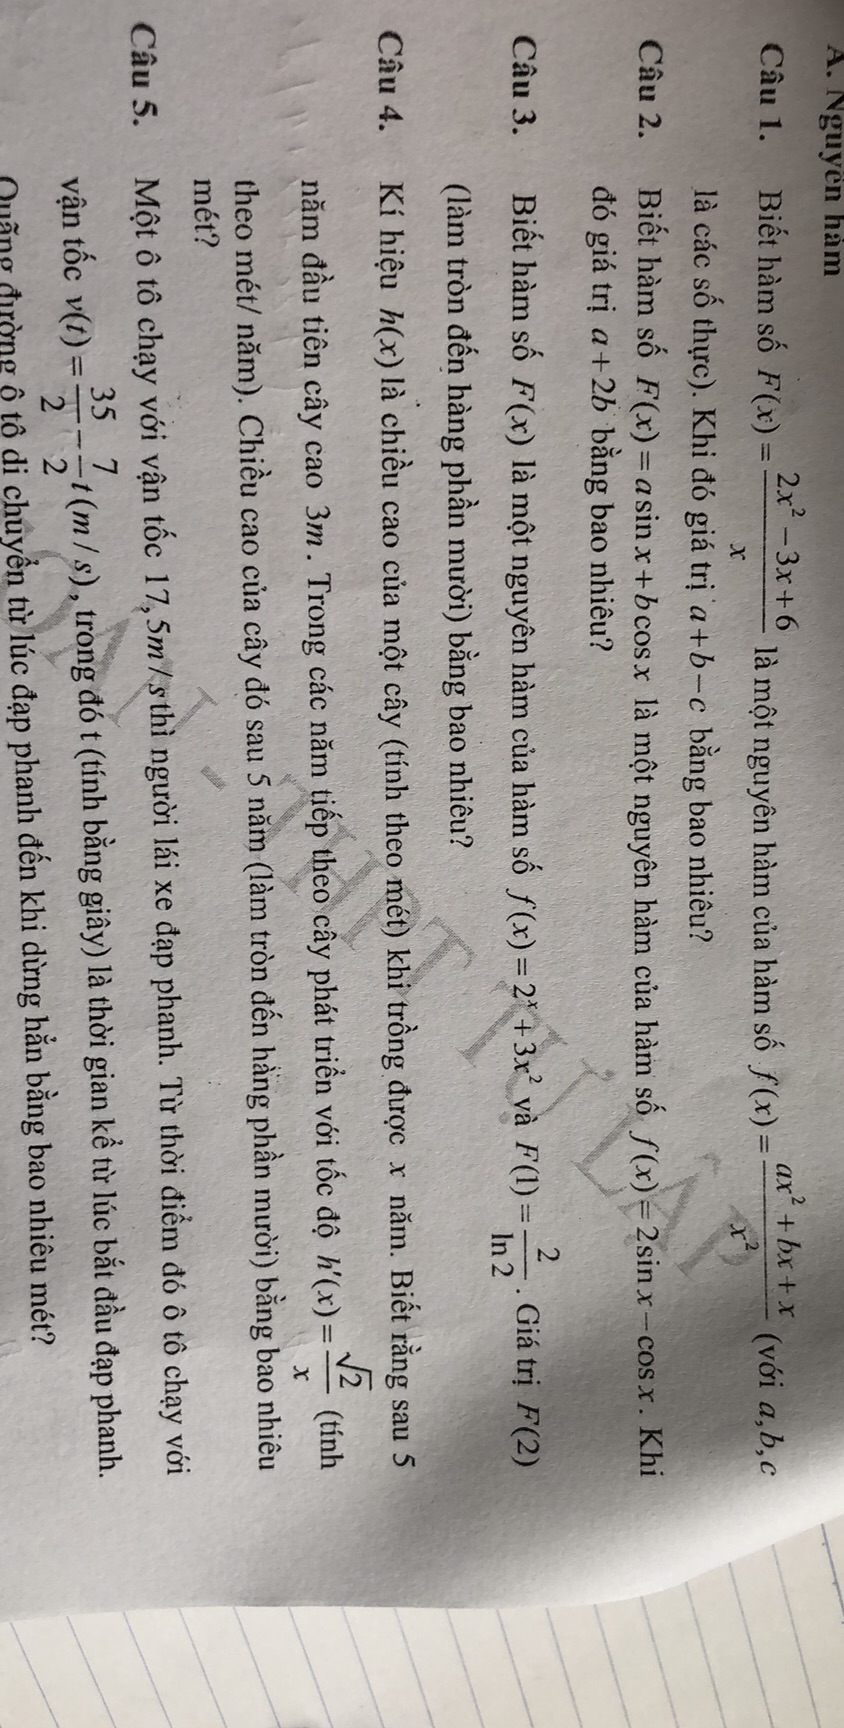 A. Nguyên hàm
Câu 1. Biết hàm số F(x) = \frac{2x^2 - 3x + 6}{x} là một nguyên hàm của hàm số f(x) = \frac{ax^2 + bx + x}{x^2} (với a,b,c
là các số thực). Khi đó giá trị a + b − c bằng bao nhiêu?
Câu 2. Biết hàm số F(x) = a sin x + b cos x là một nguyên hàm của hàm số f(x) = 2 sin x − cos x. Khi
đó giá trị a + 2b bằng bao nhiêu?
Câu 3. Biết hàm số F(x) là một nguyên hàm của hàm số f(x) = 2^x + 3x^2 và F(1) = \frac{2}{\ln 2}. Giá trị F(2)
(làm tròn đến hàng phần mười) bằng bao nhiêu?
Câu 4. Kí hiệu h(x) là chiều cao của một cây (tính theo mét) khi trồng được x năm. Biết rằng sau 5
năm đầu tiên cây cao 3m. Trong các năm tiếp theo cây phát triển với tốc độ h'(x) = \frac{\sqrt{2}}{x} (tính
theo mét/ năm). Chiều cao của cây đó sau 5 năm (làm tròn đến hàng phần mười) bằng bao nhiêu
mét?
Câu 5. Một ô tô chạy với vận tốc 17,5m / s thì người lái xe đạp phanh. Từ thời điểm đó ô tô chạy với
vận tốc v(t) = \frac{35}{2} − \frac{7}{2}t (m / s), trong đó t (tính bằng giây) là thời gian kể từ lúc bắt đầu đạp phanh.
Quãng đường ô tô di chuyển từ lúc đạp phanh đến khi dừng hẳn bằng bao nhiêu mét?
THPT TỰ LẬP